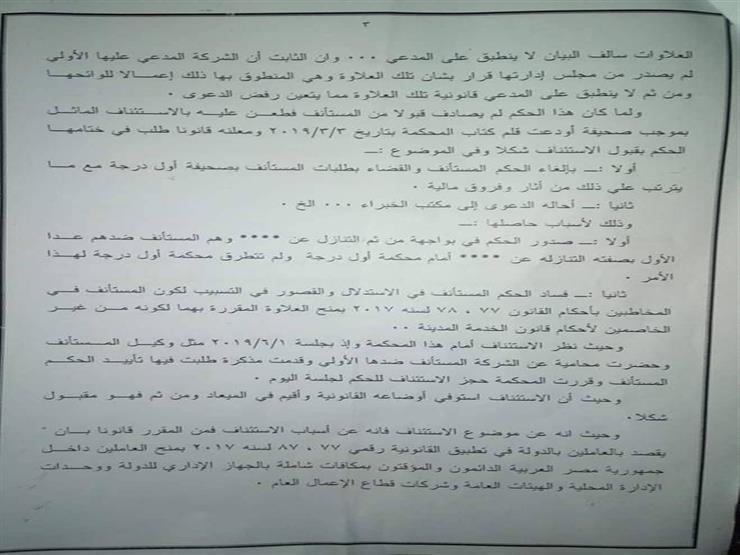 ٣
العلاوات سالف البيان لا ينطبق على المدعي ٠٠٠ وان الثابت أن الشركة المدعي عليها الأولي
لم يصدر من مجلس إدارتها قرار بشان تلك العلاوة وهي المنطوق بها ذلك إعمالا للوائحها
ومن ثم لا ينطبق على المدعي قانونية تلك العلاوة مما يتعين رفض الدعوى ٠
ولما كان هذا الحكم لم يصادف قبولا من المستأنف فطعن عليه بالاستئناف الماثل
بموجب صحيفة أودعت قلم كتاب المحكمة بتاريخ ٢٠١٩/٣/٣ ومعلنه قانونا طلب في ختامها
الحكم بقبول الاستئناف شكلا وفي الموضوع :ــ
أولا :ــ بإلغاء الحكم المستأنف والقضاء بطلبات المستأنف بصحيفة أول درجة مع ما
يترتب علي ذلك من أثار وفروق مالية ٠
ثانيا :ــ أحاله الدعوى إلى مكتب الخبراء ٠٠٠ الخ ٠
وذلك لأسباب حاصلها :ــ
أولا :ــ صدور الحكم في بواجهة من ثم التنازل عن **** وهم المستأنف ضدهم عدا
الأول بصفته التنازله عن **** أمام محكمة أول درجة ولم تتطرق محكمة أول درجة لهذا
الأمر ٠
ثانيا :ــ فساد الحكم المستأنف في الاستدلال والقصور في التسبيب لكون المستأنف في
المخاطبين بأحكام القانون ٧٧ ، ٧٨ لسنه ٢٠١٧ بمنح العلاوة المقررة بهما لكونه من غير
الخاصمين لأحكام قانون الخدمة المدينة ٠٠
وحيث نظر الاستئناف أمام هذا المحكمة وإذ بجلسة ٢٠١٩/٦/١ مثل وكيل المستأنف
وحضرت محامية عن الشركة المستأنف ضدها الأولي وقدمت مذكرة طلبت فيها تأييد الحكم
المستأنف وقررت المحكمة حجز الاستئناف للحكم لجلسة اليوم ٠
وحيث أن الاستئناف استوفي أوضاعه القانونية وأقيم في الميعاد ومن ثم فهو مقبول
شكلا٠
وحيث انه عن موضوع الاستئناف فانه عن أسباب الاستئناف فمن المقرر قانونا بان
يقصد بالعاملين بالدولة في تطبيق القانونية رقمي ٧٧ ، ٨٧ لسنه ٢٠١٧ بمنح العاملين داخل
جمهورية مصر العربية الدائمون والمؤقتون بمكافات شاملة بالجهاز الإداري للدولة ووحدات
الإدارة المحلية والهيئات العامة وشركات قطاع الإعمال العام ٠